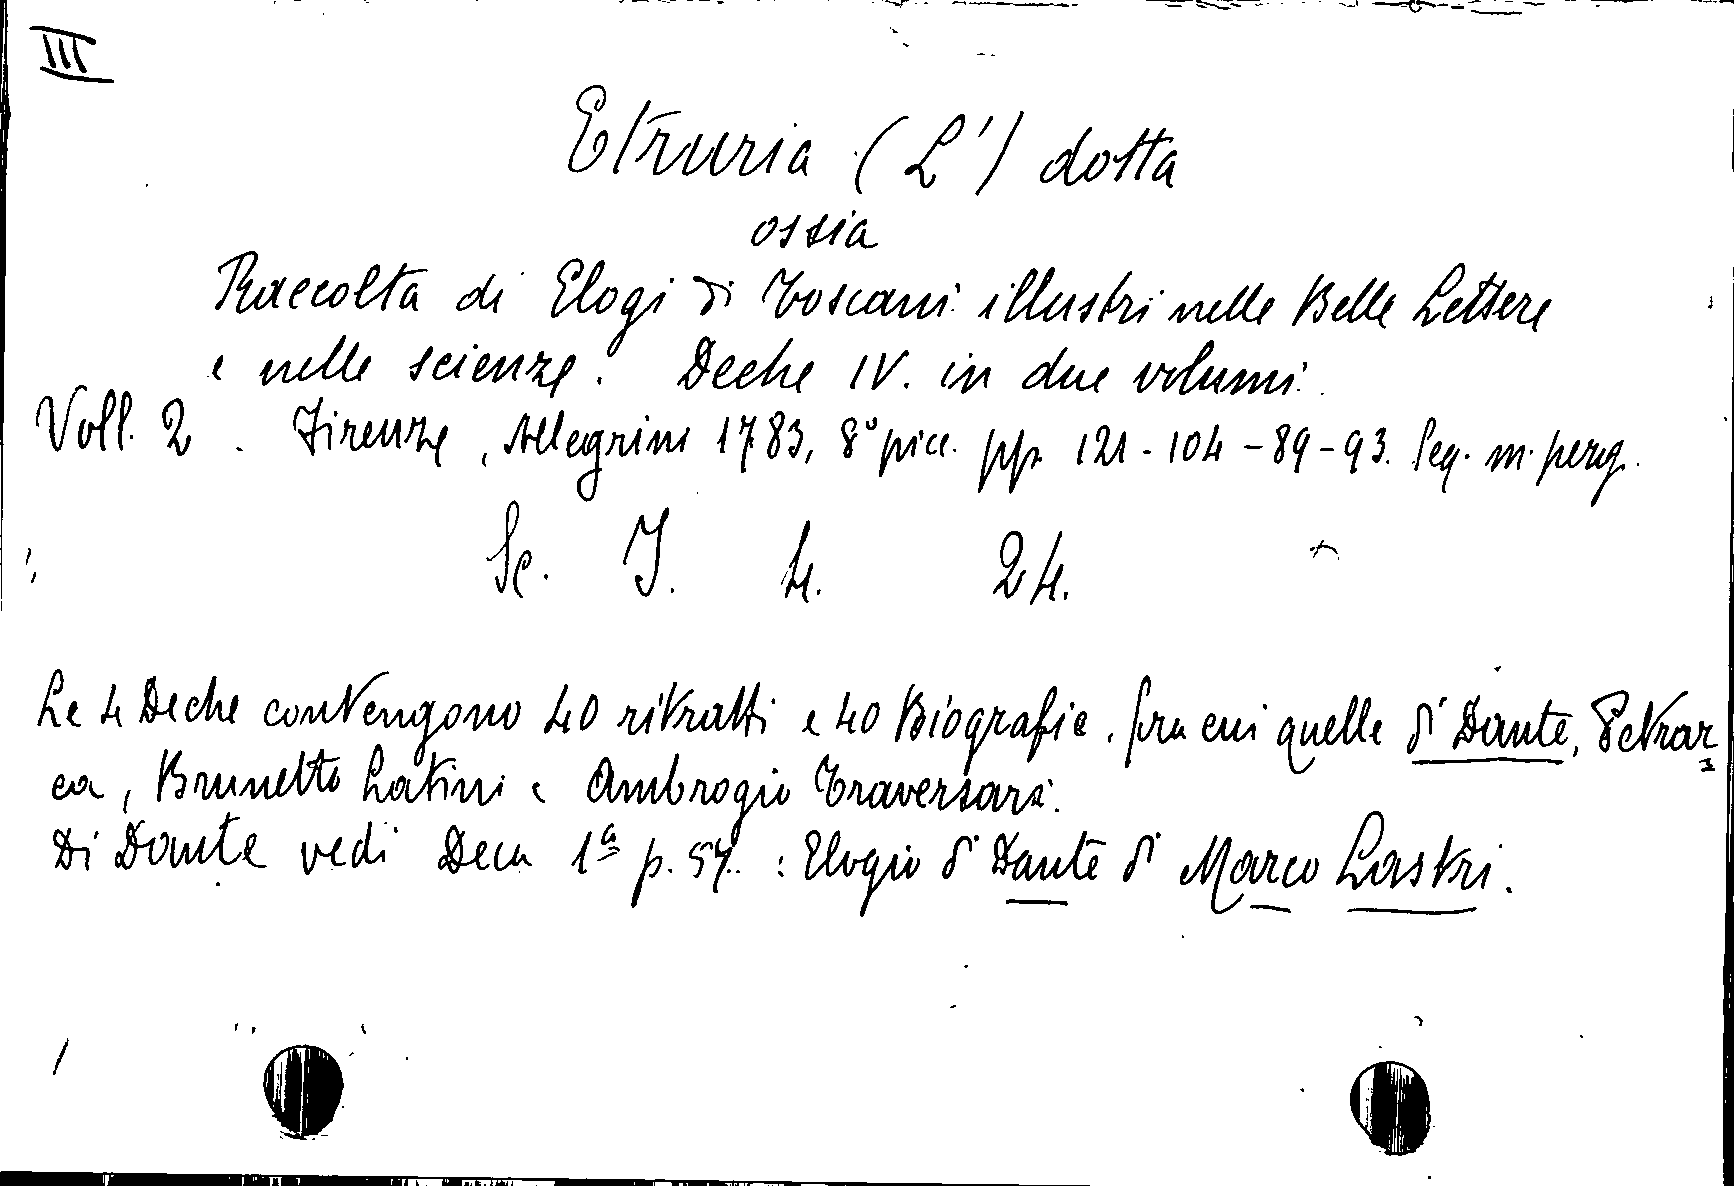 III
Etruria (L') dotta
ossia
Raccolta di Elogi di Toscani illustri nelle Belle Lettere
e nelle scienze. Deche IV. in due volumi.
Voll. 2. Firenze, Allegrini 1783, 8° picc. pp. 121-104-89-93. Leg. m. perg.
Sc. I. 4. 24.
Le 4 Deche contengono 40 ritratti e 40 Biografie, fra cui quelle di Dante, Petrar
ca, Brunetto Latini e Ambrogio Traversari.
Di Dante vedi Deca 1ª p. 57. : Elogio di Dante di Marco Lastri.